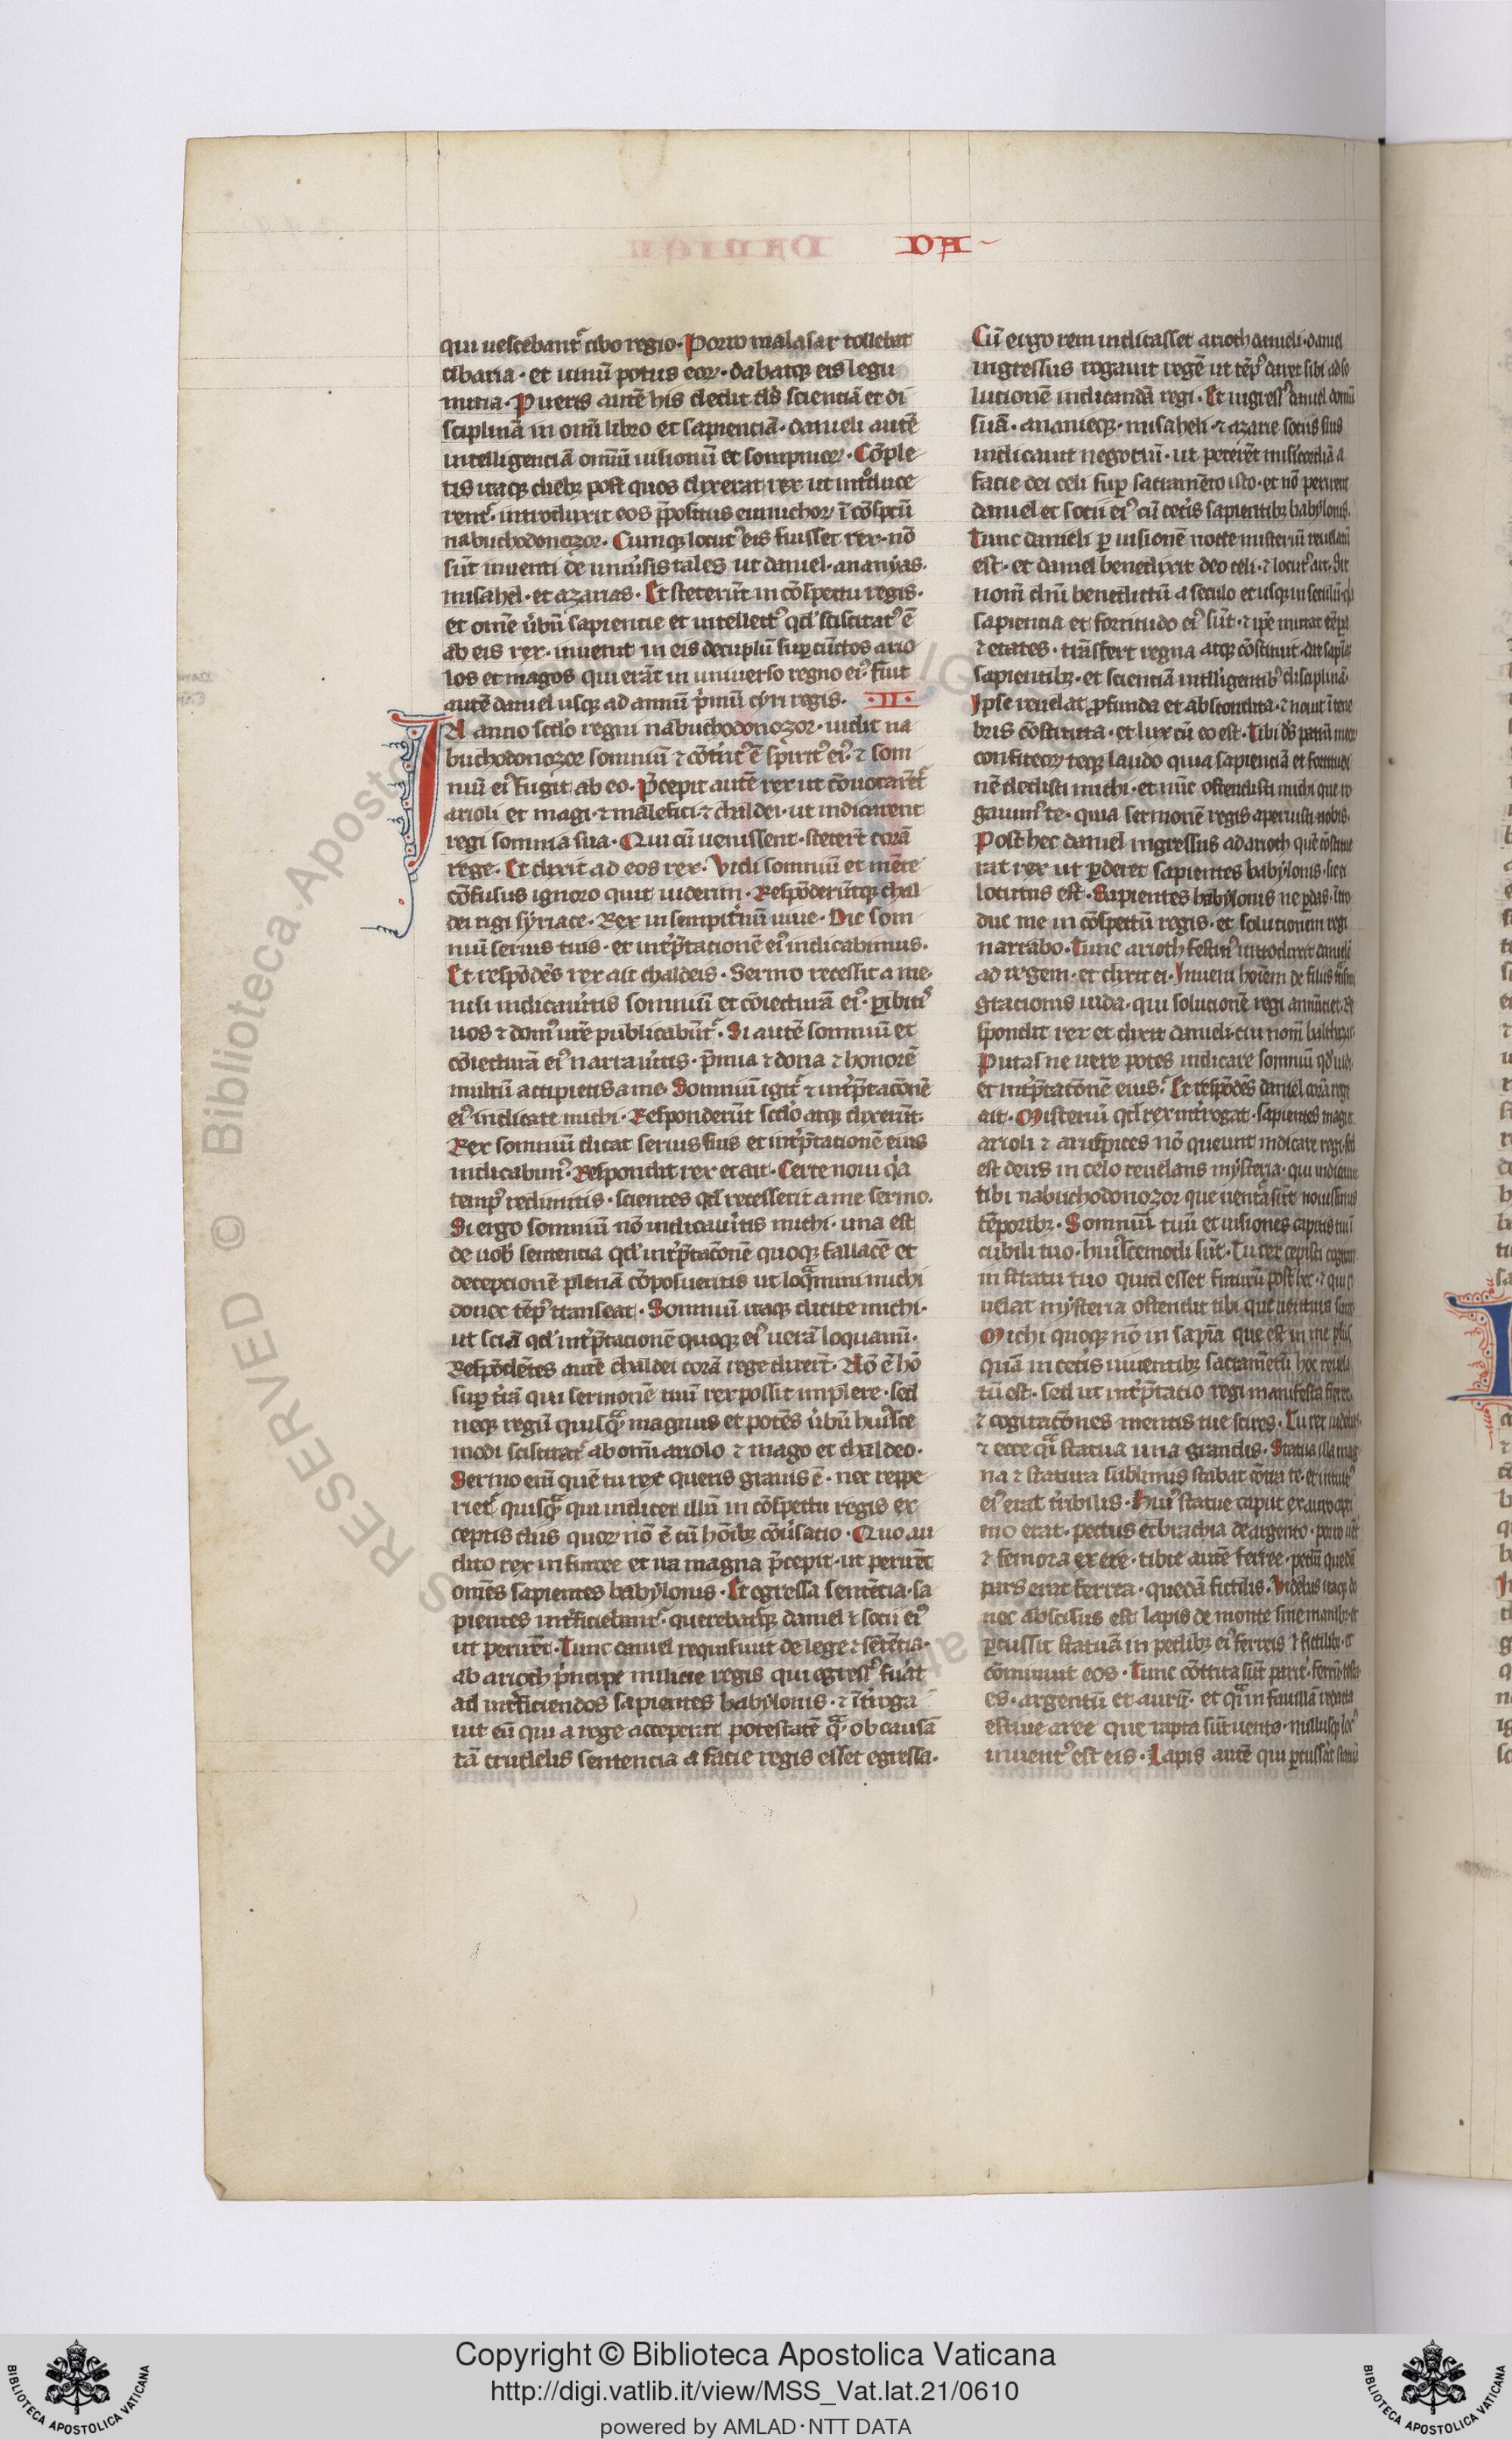 DA
qui uescebant᷑ cibo regio. Porro malasar tollebat
cibaria. et uinū potus eoꝝ. dabatqꝫ eis legu
mina. Pueris autē his dedit ds̄ scienciā et di
sciplinā in omī libro et sapienciā. danieli autē
intelligenciā omniū uisionū et sompnioꝝ. Cōple
tis itaqꝫ diebꝫ post quos dixerat rex ut int͛oduce
rent᷑. introduxit eos p̄positus eunuchoꝝ ī cōspcū
nabuchodonozor. Cumqꝫ locutꝰ eis fuisset rex. nō
sūt inuenti de uniu͛sis tales ut daniel. ananyas.
misahel. et azarias. Et steterūt in cōspectu regis.
et omē u͛bū sapiencie et intellectꝰ qd̓ sciscitatꝰ ē
ab eis rex. inuenit in eis decuplū suꝑ cūctos ario
los et magos qui erāt in uniuerso regno eiꝰ. fuit
autē daniel usqꝫ ad annū p͛mū cyri regis. .II.
IN anno scd̓o regni nabuchodonozor. uidit na
buchodonozor somniū ⁊ cōt͛ritꝰ ē spiritꝰ eiꝰ. ⁊ som
niū eiꝰ fugit ab eo. P̄cepit autē rex ut cōuocarēt᷑
arioli et magi. ⁊ malefici. ⁊ chaldei. ut indicarent
regi somnia sua. Qui cū uenissent. steterūt corā
rege. Et dixit ad eos rex. Vidi somniū et mēte
cōfusus ignoro quit uiderim. Respōderūtqꝫ chal
dei rigi syriace. Rex in sempit͛nū uiue. Dic som
niū seruis tuis. et int͛p̄tacionē eiꝰ indicabimus.
Et respōdēs rex ait chaldeis. Sermo recessit a me.
nisi indicau͛itis somniū et cōiecturā eiꝰ. ꝑibitiꝰ
uos ⁊ domꝰ ur̄e publicabūt᷑. Si autē somniū et
cōiecturā eiꝰ narrau͛itis. p̄mia ⁊ dona ⁊ honorē
multū accipietis a me. Somniū igit᷑ ⁊ int͛p̄tacōnē
eiꝰ indicate michi. Responderūt scd̓o atqꝫ dixerūt.
Rex somniū dicat seruis suis et int͛p̄tacionē eius
indicabimꝰ. Respondit rex et ait. Certe noui qᷓa
tempꝰ redimitis. scientes qd̓ recesserit a me sermo.
Si ergo somniū nō indicau͛itis michi. una est
de uob̓ sentencia qd̓ int͛p̄tacōnē quoqꝫ fallacē et
decepcionē plenā cōposueritis ut loqᷓmini michi
donec tēpꝰ transeat. Somniū itaqꝫ dicite michi.
ut sciā qd̓ int͛p̄tacionē quoqꝫ eiꝰ uerā loquamī.
Respōdētes autē chaldei corā rege dixert̄. Nō ē hō
suꝑ t͛rā qui sermonē tuū rex possit implere. sed
neqꝫ regū quisqᷓ magnus et potēs u͛bū huiꝰsce
modi sciscitat᷑ ab omī ariolo ⁊ mago et chaldeo.
Sermo eni͞ quē tu rex queris grauis ē. nec reppe
riet᷑ quisqᷓ qui indicet illū in cōspectu regis ex
ceptis diis quoꝝ nō ē cū hōibꝫ cōu͛satio. Quo au
dito rex in furore et ira magna p̄cepit. ut perirēt
omēs sapientes babylonis. Et egressa sentēcia. sa
pientes int͛ficiebant᷑. querebat᷑qꝫ daniel ⁊ socii eiꝰ
ut perirēt. Tunc daniel requisiuit de lege ⁊ sētētia.
ab arioch p͛ncipe milicie regis qui egressꝰ fu͛at
ad int͛ficiendos sapientes babylonis. ⁊ īt͛roga
uit eū qui a rege acceperat potestatē qᷓ ob causā
tā crudelis sentencia a facie regis esset egressa.
Cū ergo rem indicasset arioch danieli. daniel
ingressus rogauit regē ut tēpꝰ daret sibi ad so
lucionē indicandā regi. Et ingressꝰ daniel domū
suā. ananieqꝫ. misaheli. ⁊ azarie sociis suis
indicauit negotiū. ut pererēt misicordiā a
facie dei celi suꝑ sacramēto isto. et nō perirent
daniel et socii eiꝰ cū cet͛is sapientibꝫ babylonis.
Tunc danieli ꝑ uisionē nocte misteriū reuelatū
est. et daniel benedixit deo celi. ⁊ locutꝰ ait. Sit
nom̄ dn̄i benedictū a seculo et usqꝫ in seculū. qꝛ
sapiencia et fortitudo eiꝰ sūt. ⁊ ip̄e mutat tēpa
⁊ etates. trāsfert regna atqꝫ cōstituit. dat sapīaꝫ
sapientibꝫ. et scienciā intelligentibꝰ disciplinā.
Ipse reuelat ꝓfunda et abscondita. ⁊ nouit ī tene
bris cōstituta. et lux cū eo est. Tibi ds̄ patrū meoꝝ
confiteor teqꝫ laudo quia sapienciā et fortitudi
nē dedisti michi. et nūc ostendisti michi que ro
gauimꝰ te. quia sermonē regis aperuisti nobis.
Post hec daniel ingressus ad arioch quē cōstitue
rat rex ut ꝑderet sapientes babylonis. sic ei
locutus est. Sapientes babylonis ne ꝑdas. Intro
duc me in cōspectū regis. et solutionem regi
narrabo. Tunc arioch festinꝰ introduxit danielē
ad regem. et dixit ei. Inueni hoīem de filiis t͛nsmi
gracionis iuda. qui solucionē regi annūciet. Re
spondit rex et dixit danieli. cui nom̄ balthasar.
Putas ne uere potes indicare somniū qd̓ uidi.
et int͛p̄tacōnē eius. Et respōdēs daniel corā rege
ait. Misteriū qd̓ rex int͛rogat. sapientes magi.
arioli ⁊ aruspices nō queunt indicare regi. sed
est deus in celo reuelans mysteria. qui indicauit
tibi nabuchodonozor que uentura sūt nouissimis
tēporibꝫ. Somniū tuū et uisiones capitis tui ī
cubili tuo. huiꝰscemodi sūt. Tu rex cepisti cogitare
in stratu tuo quid esset futurū post hec. ⁊ qui re
uelat mysteria ostendit tibi que uentura sunt
Michi quoqꝫ nō in sapīa que est in me plus
quā in cet͛is uiuentibꝫ sacramētū hoc reuela
tū est. sed ut int͛p̄tatio regi manifesta fieret.
⁊ cogitacōnes mentis tue scires. Tu rex uidebas.
⁊ ecce qᷓi statua una grandis. Statua illa mag
na ⁊ statura sublimis stabat cōtra te. et intuitꝰ
eiꝰ erat t͛ribilis. Huiꝰ statue caput ex auro opti
mo erat. pectus et brachia de argento. porro uēt͛
⁊ femora ex ere. tibie autē ferree. pedū quedā
pars erat ferrea. quedā fictilis. Videbas itaqꝫ do
nec abscisus est lapis de monte sine manibꝫ. et
ꝑcussit statuā in pedibꝫ eiꝰ ferreis ⁊ fictilibꝫ. et
cōminuit eos. Tunc cōtrita sūt parit͛. ferrū. testa
es. argentū et aurū. et qᷓi in fauillā redacta
estiue aree que rapta sūt uento. nullusqꝫ locꝰ
inuentꝰ est eis. Lapis autē qui ꝑcusserat statuā
Copyright © Biblioteca Apostolica Vaticana
http://digi.vatlib.it/view/MSS_Vat.lat.21/0610
powered by AMLAD·NTT DATA
BIBLIOTECA APOSTOLICA VATICANA
BIBLIOTECA APOSTOLICA VATICANA